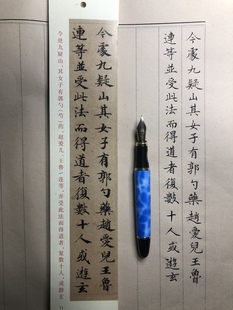 今處九疑山其女子有郭勺藥趙愛兒王魯
連等並受此法而得道者復數十人或遊玄
今處九疑山其女子有郭勺藥趙愛兒王魯
連等並受此法而得道者復數十人或遊玄
今处九疑山，其女子有郭勺（芍）药、赵爱儿、王鲁连等，并受此法而得道者，复数十人，或游玄